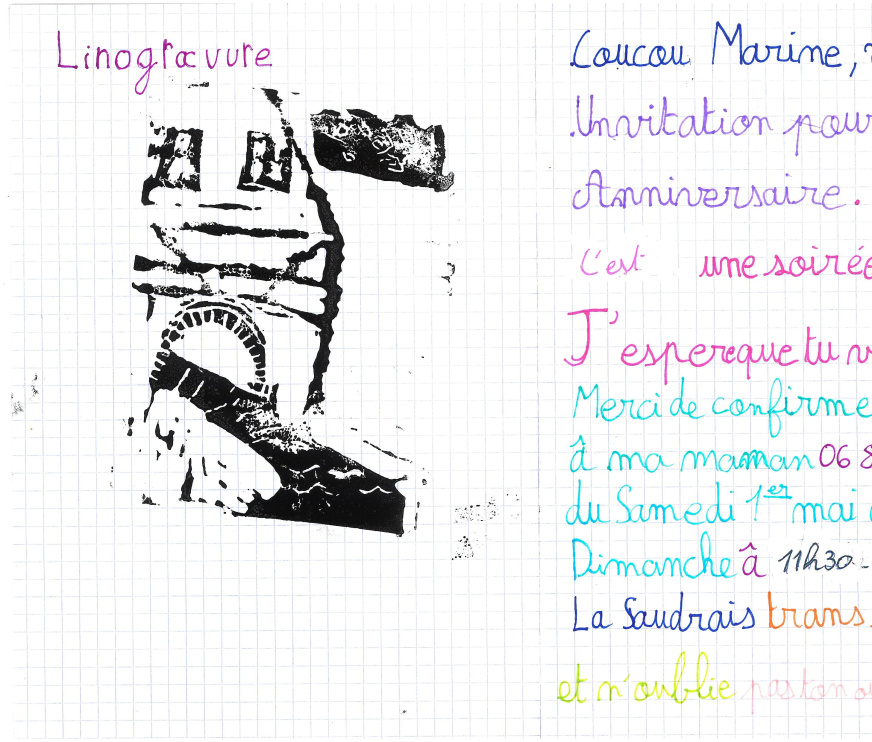 Linogravure
Coucou Marine,
Unvitation pour
Anniversaire.
C'est une soirée
J'espereque tu
Merci de confirme
à ma maman 06 8
du Samedi 1er mai
Dimanche à 11h30 -
La Saudrais trans
et n'oublie pas ton